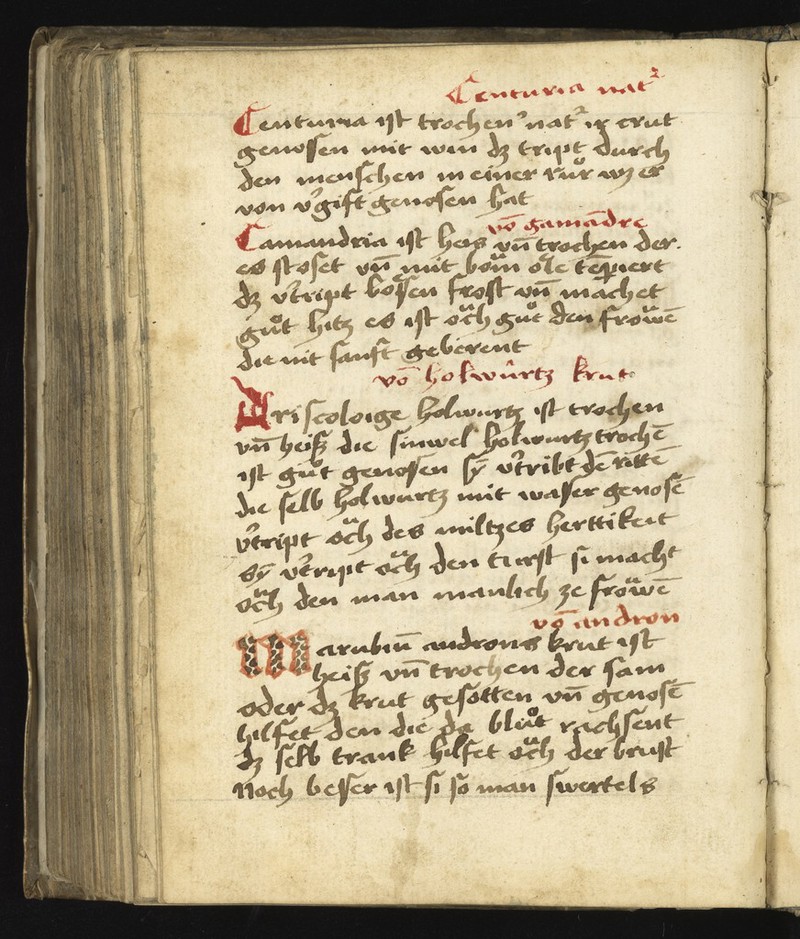 Centuria nat᷑
Centuria ist trochen᷑ nat᷑ ir crut
genossen mit win dz tript durch
den menschen in einer růr wz er
von v᷑gift genosen hat
võ gamãdre
Camandria ist heis vñ trochen der
es stoset vñ mit bom öle tẽpiert
dz v᷑tript bössen frost vñ machet
gůt hitz es ist och gůt den frowẽ
die nit sanft geberent
võ holwurtz krut
Ariscoloige holwurtz ist trochen
vñ heiß die sinwel holwurtz trochẽ
ist gůt genossen sy v᷑tribt dẽ rittẽ
die selb holwurtz mit wasser genosẽ
v᷑tript och des miltzes herttikeit
sy v᷑tript och den turst si macht
och den man manlich ze frowẽ
võ andron
Marubiũ androns krut ist
heiß vñ trochen der sam
oder dz krut gesotten vñ genosẽ
hilfet den die da blůt rachsent
dz selb trank hilfet och der brust
Noch besser ist si so man swertels